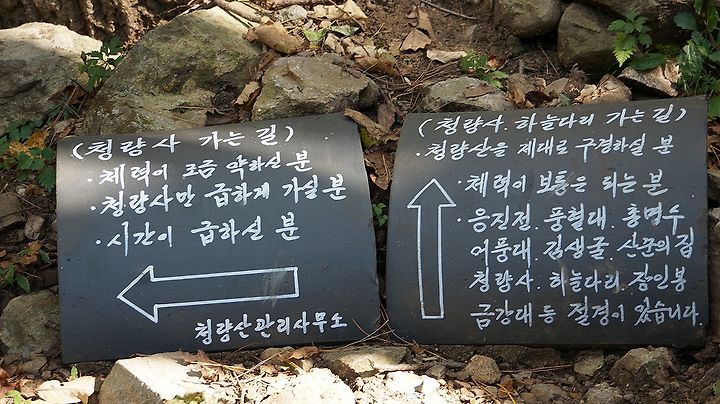 (청량사 가는 길)
·체력이 조금 약하신 분
·청량사만 급하게 가실 분
·시간이 급하신 분
청량산관리사무소
(청량사.하늘다리 가는 길)
·청량산을 제대로 구경하실 분
·체력이 보통은 되는 분
·응진전.풍혈대.총명수
어풍대.김생굴.산꾼의 집
청량사.하늘다리.장인봉
금강대 등 절경이 있습니다.